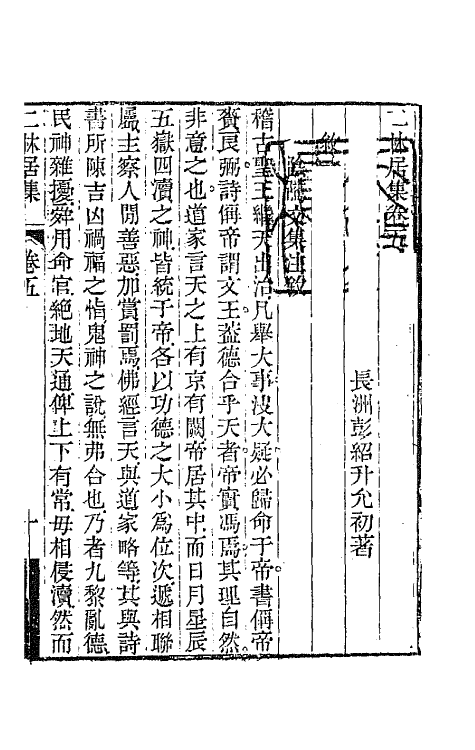 二林居集卷五
長洲彭紹升允初著
敘
陰隲文集注敘
稽古聖王繼天出治凡舉大事沒大疑必歸命于帝書偁帝
賚良弼詩偁帝謂文王葢德合乎天者帝實馮焉其理自然
非意之也道家言天之上有京有闕帝居其中而日月星辰
五嶽四瀆之神皆統于帝各以功德之大小爲位次遞相聯
屬主察人閒善惡加賞罰焉佛經言天與道家略等其與詩
書所陳吉凶禍福之恉鬼神之說無弗合也乃者九黎亂德
民神雜擾舜用命官絕地天通俾上下有常毋相侵瀆然而
二林居集
卷五
一